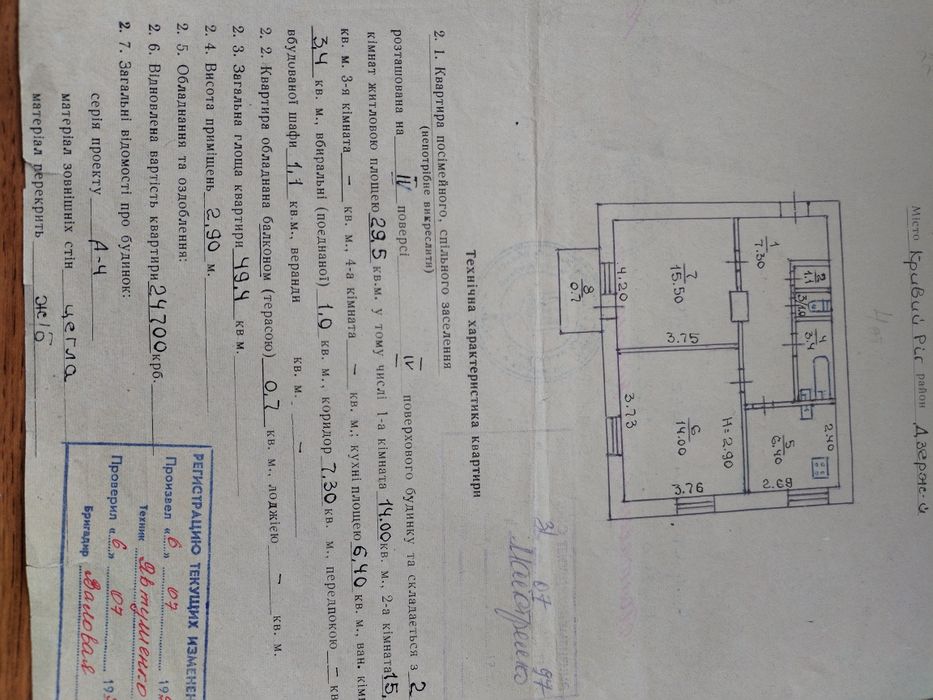 Місто Кривий Ріг район Дзержс-й
1
7.30
2
1.1
3/1.0
4
3.4
5
6.40
2.40
2.69
7
15.50
4.20
3.75
8
0.7
6
14.00
H=2.90
3.73
3.76
31 07 97
Технічна характеристика квартири
2. 1. Квартира посімейного, спільного заселення
(непотрібне викреслити)
розташована на IV поверсі IV поверхового будинку та складається з 2
кімнат житловою площею 29,5 кв.м. у тому числі 1-а кімната 14.00 кв. м., 2-а кімната 15,
кв. м. 3-я кімната — кв. м. 4-а кімната — кв. м.; кухні площею 6,40 кв. м., ван. кім
3,4 кв. м., вбиральні (поєднаної) 1.0 кв. м., коридор 7.30 кв. м., передпокою — кв
вбудованої шафи 1,1 кв.м., веранди — кв. м.
2. 2. Квартира обладнана балконом (терасою) 0,7 кв. м., лоджією — кв. м.
2. 3. Загальна площа квартири 49,4 кв м.
2. 4. Висота приміщень 2,90 м.
2. 5. Обладнання та оздоблення:
2. 6. Відновлена вартість квартири 24700 крб.
2. 7. Загальні відомості про будинок:
серія проекту Д-4
матеріал зовнішніх стін цегла
матеріал перекрить ж/б
РЕГИСТРАЦИЮ ТЕКУЩИХ ИЗМЕНЕН
Произвел «6» 07 19
Техник Явтушенко
Проверил «6» 07 19
Бригадир Валовая